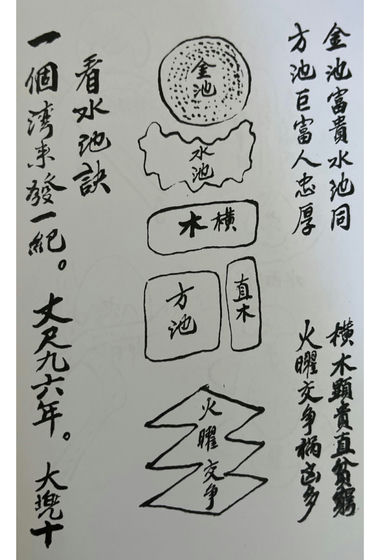 金池富貴水池同
橫木顯貴直貧窮
方池巨富人忠厚
火曜交争禍凶多
金池
水池
橫木
直木
方池
火曜交争
看水池訣
一個灣來發一紀。丈尺九六年。大兜十